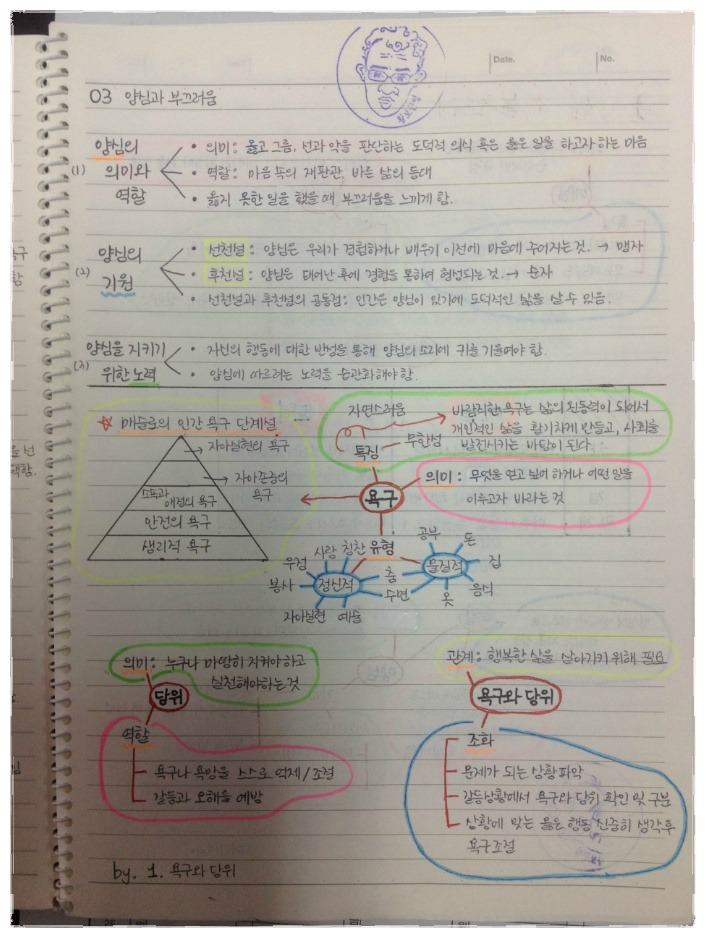 Date.
No.
03 양심과 부끄러움
양심의
(1) 의미와
역할
• 의미: 옳고 그름, 선과 악을 판단하는 도덕적 의식 혹은 옳은 일을 하고자 하는 마음
• 역할: 마음 속의 재판관, 바른 삶의 등대
• 옳지 못한 일을 했을 때 부끄러움을 느끼게 함.
양심의
(2) 기원
• 선천설: 양심은 우리가 경험하거나 배우기 이전에 마음에 주어지는 것. → 맹자
• 후천설: 양심은 태어난 후에 경험을 통하여 형성되는 것. → 순자
• 선천설과 후천설의 공통점: 인간은 양심이 있기에 도덕적인 삶을 살 수 있음.
양심을 지키기
(3) 위한 노력
• 자신의 행동에 대한 반성을 통해 양심의 소리에 귀를 기울여야 함.
• 양심에 따르려는 노력을 습관화해야 함.
☆ 매슬로의 인간 욕구 단계설
→ 자아실현의 욕구
→ 자아존중의
욕구
소속과
애정의 욕구
안전의 욕구
생리적 욕구
자연스러움
특징
무한성
바람직한 욕구는 삶의 원동력이 되어서
개인적인 삶을 활기차게 만들고, 사회를
발전시키는 바탕이 된다.
욕구
의미: 무엇을 얻고 싶어 하거나 어떤 일을
이루고자 바라는 것
유형
정신적
우정
사랑
칭찬
봉사
자아실현
예술
물질적
공부
돈
집
춤
수면
옷
음식
의미: 누구나 마땅히 지켜야 하고
실천해야하는 것
당위
역할
욕구나 욕망을 스스로 억제/조절
갈등과 오해를 예방
관계: 행복한 삶을 살아가기 위해 필요
욕구와 당위
조화
문제가 되는 상황 파악
갈등상황에서 욕구와 당위 확인 및 구분
상황에 맞는 옳은 행동 신중히 생각 후
욕구조절
by. 1. 욕구와 당위